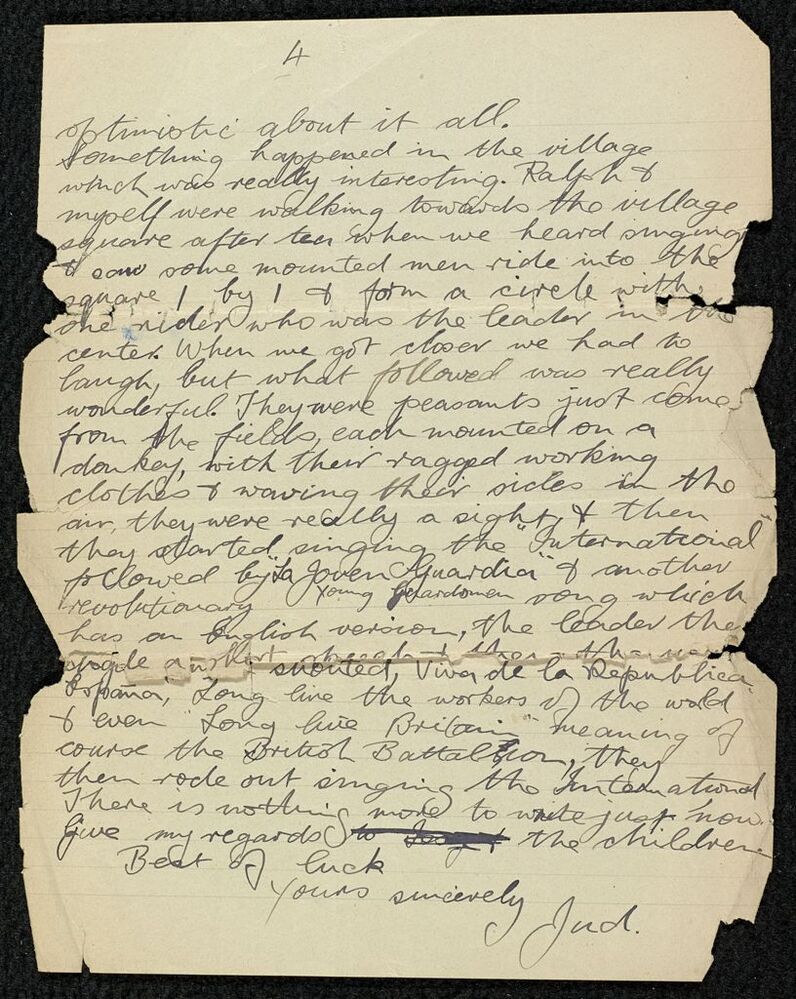 4
optimistic about it all.
Something happened in the village
which was really interesting. Ralph &
myself were walking towards the village
square after tea when we heard singing
& saw some mounted men ride into the
square 1 by 1 & form a circle with
one rider who was the leader in the
center. When we got closer we had to
laugh, but what followed was really
wonderful. They were peasants just come
from the fields, each mounted on a
donkey, with their ragged working
clothes & waving their sicles in the
air, they were really a sight, & then
they started singing the "International"
followed by "La Joven Guardia" & another
Young Guardsmen
revolutionary song which
has an English version, the leader then
a short speech & then
shouted, Viva de la Republica
Espana, Long live the workers of the world
& even "Long live Britain" meaning of
course the British Battallion, they
then rode out singing the International
There is nothing more to write just now.
Give my regards to the children
Best of luck
Yours sincerely
Jud.